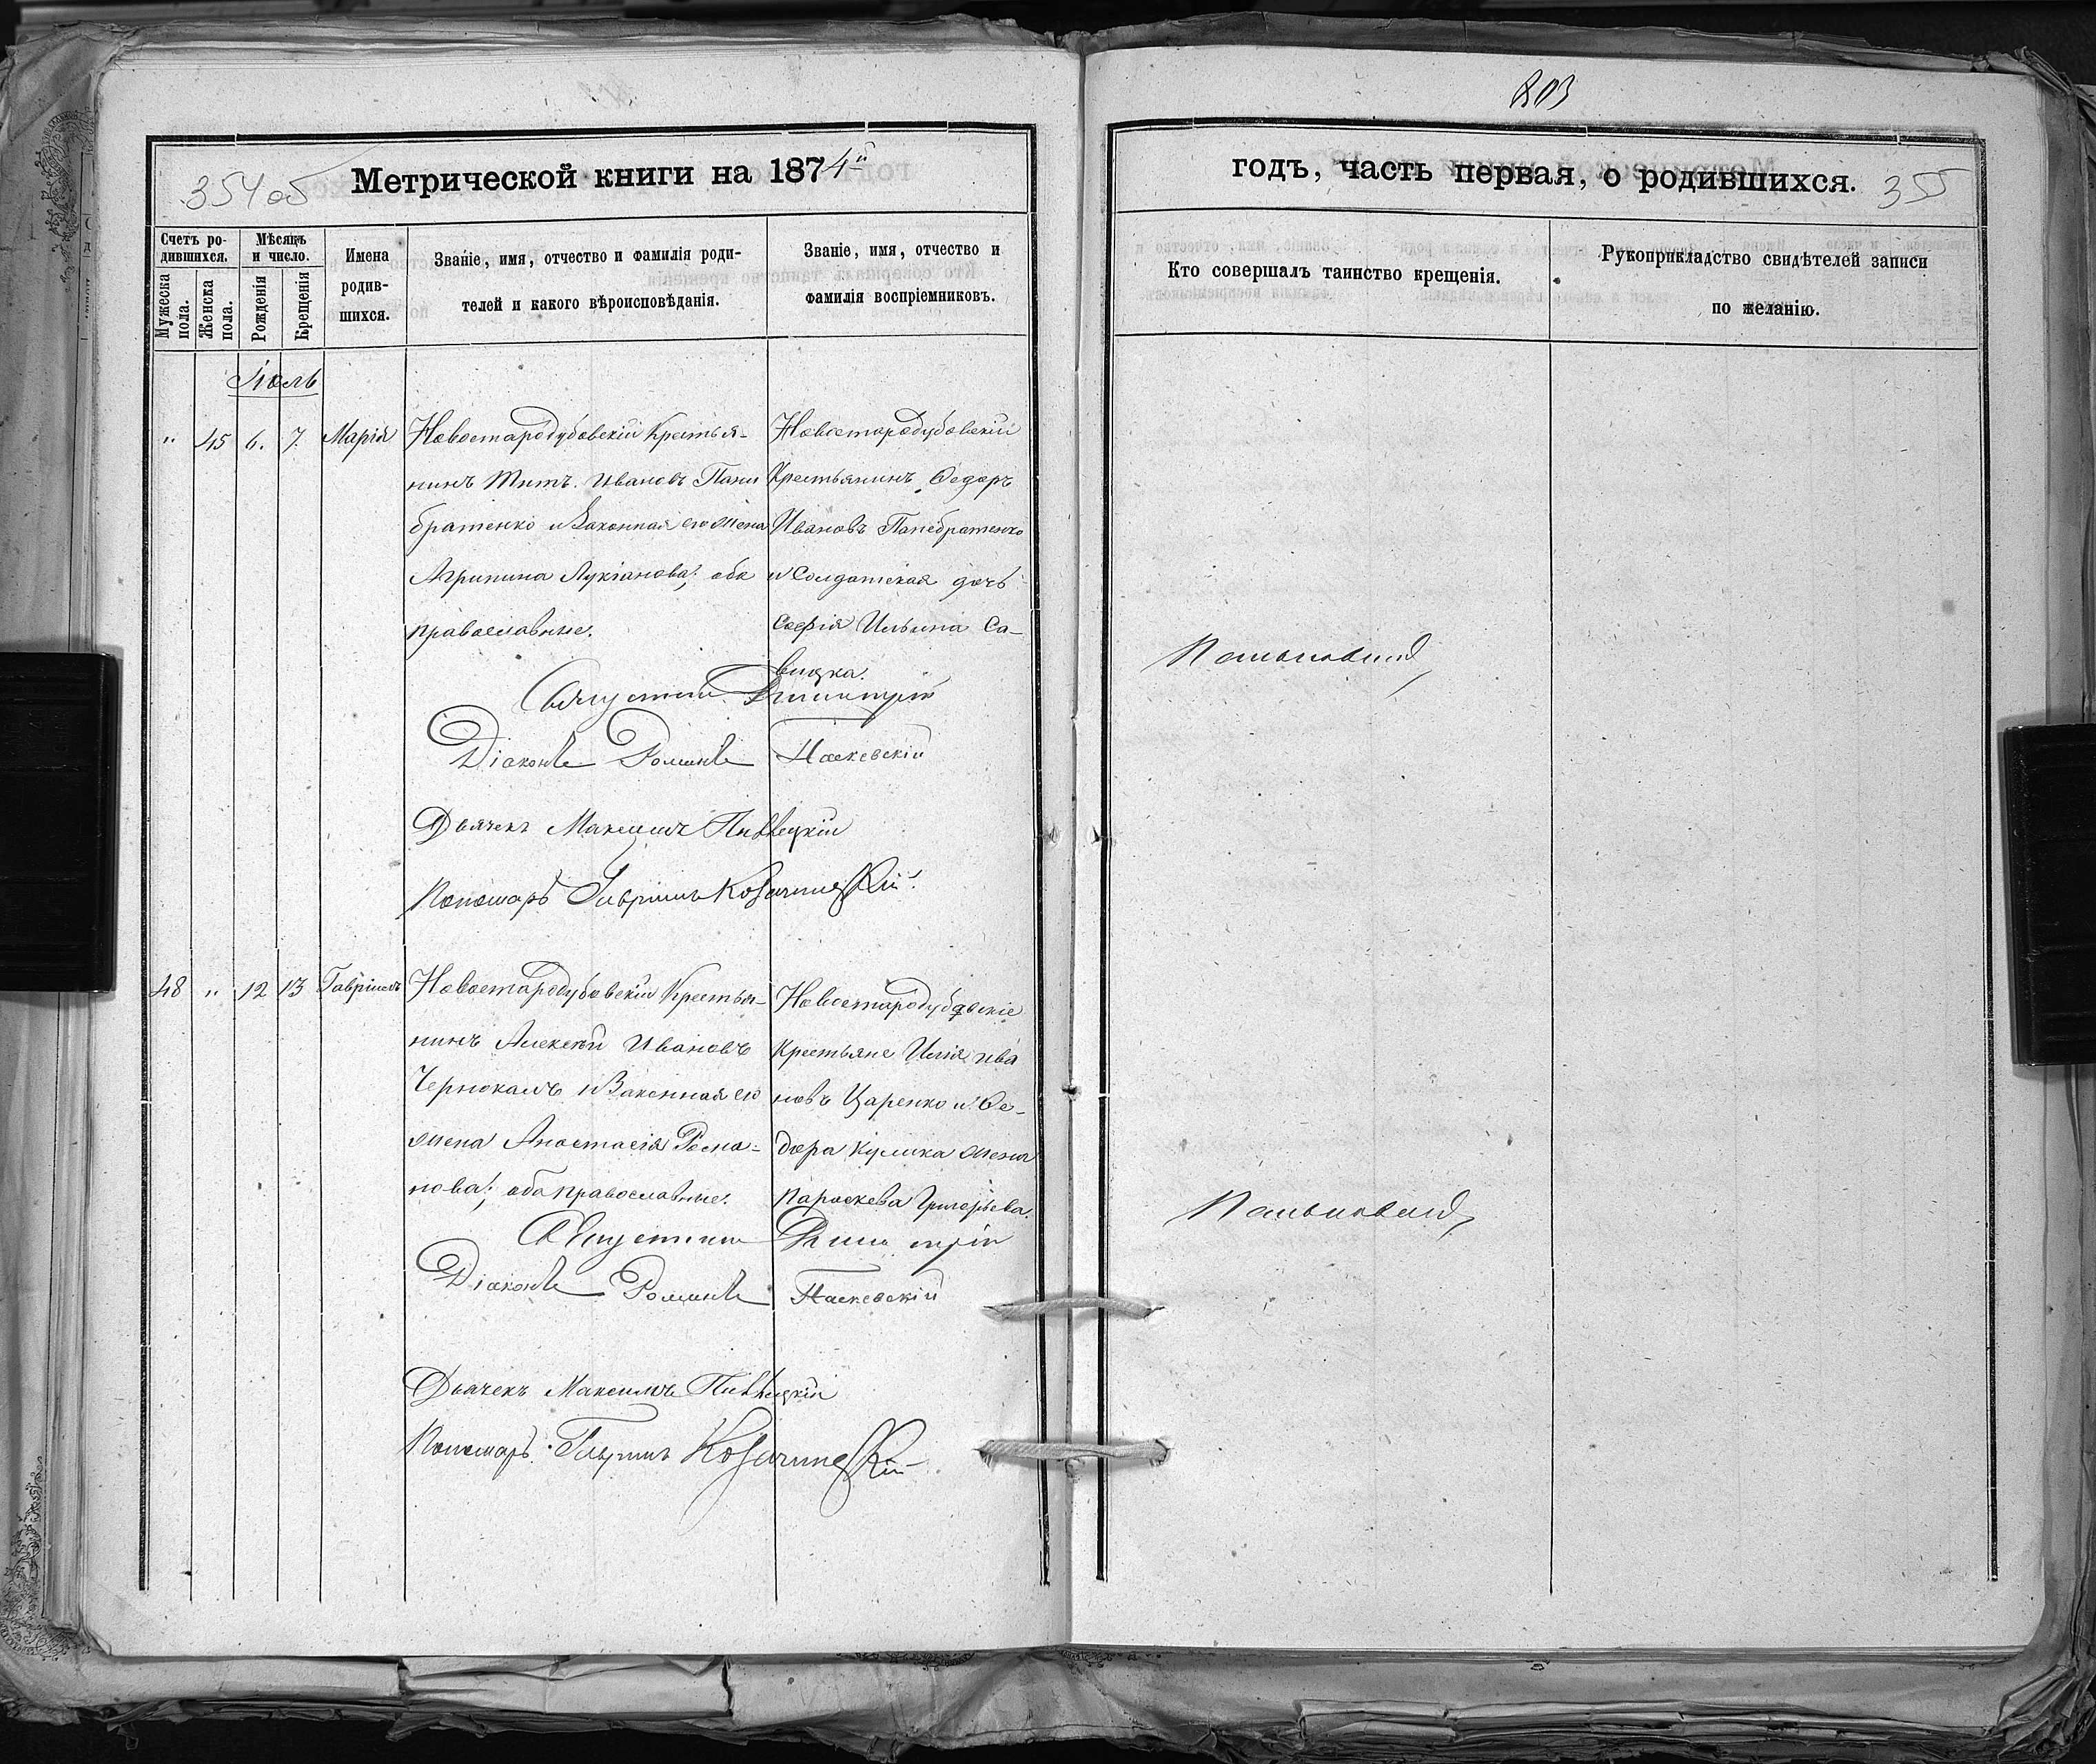 803
Метрической книги на 1874й
354об
годъ, часть первая, о родившихся.
355
Счетъ ро-
дившихся.
Мужеска
пола.
Женска
пола.
Мѣсяцъ
и число.
Рожденія
Крещенія
Имена
родив-
шихся.
Званіе, имя, отчество и фамилія роди-
телей и какого вѣроисповѣданія.
Званіе, имя, отчество и
фамилія воспріемниковъ.
Кто совершалъ таинство крещенія.
Рукоприкладство свидѣтелей записи
по желанію.
Іюль
" 45 6. 7. Марія
Новостародубовскій Крестья-
нинъ Титъ Ивановъ Пани
братенко и Законная его жена
Агрипина Лукіанова; оба
православные.
Новостародубовскій
Крестьянинъ Ѳедоръ
Ивановъ Панебратенко
и Солдатская дочь
Софія Ильина Са-
вицка.
Августинъ Димитрій
Діаконъ Романъ Паскевскій
Дьячекъ Максимъ
Пономарь Гавріилъ
48 " 12 13 Гавріилъ
Новостародубовскій Крестья-
нинъ Алексѣй Ивановъ
Чернокалъ и Законная его
жена Анастасія Рома-
нова; оба православные.
Новостародубовскіе
Крестьяне Илія Ива
новъ Царенко и Ѳе-
дора Кулика жена
Параскева Григорьева.
Августинъ Димитрій
Діаконъ Романъ Паскевскій
Дьячекъ Максимъ
Пономарь Гавріилъ